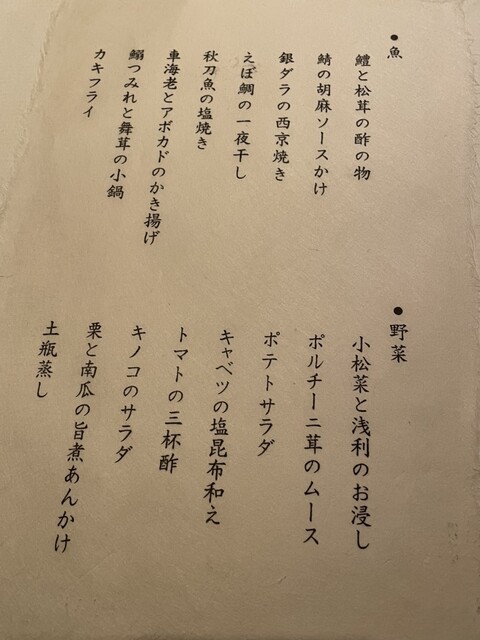 ●魚
鱧と松茸の酢の物
鯖の胡麻ソースかけ
銀ダラの西京焼き
えぼ鯛の一夜干し
秋刀魚の塩焼き
車海老とアボカドのかき揚げ
鰯つみれと舞茸の小鍋
カキフライ
●野菜
小松菜と浅利のお浸し
ポルチーニ茸のムース
ポテトサラダ
キャベツの塩昆布和え
トマトの三杯酢
キノコのサラダ
栗と南瓜の旨煮あんかけ
土瓶蒸し